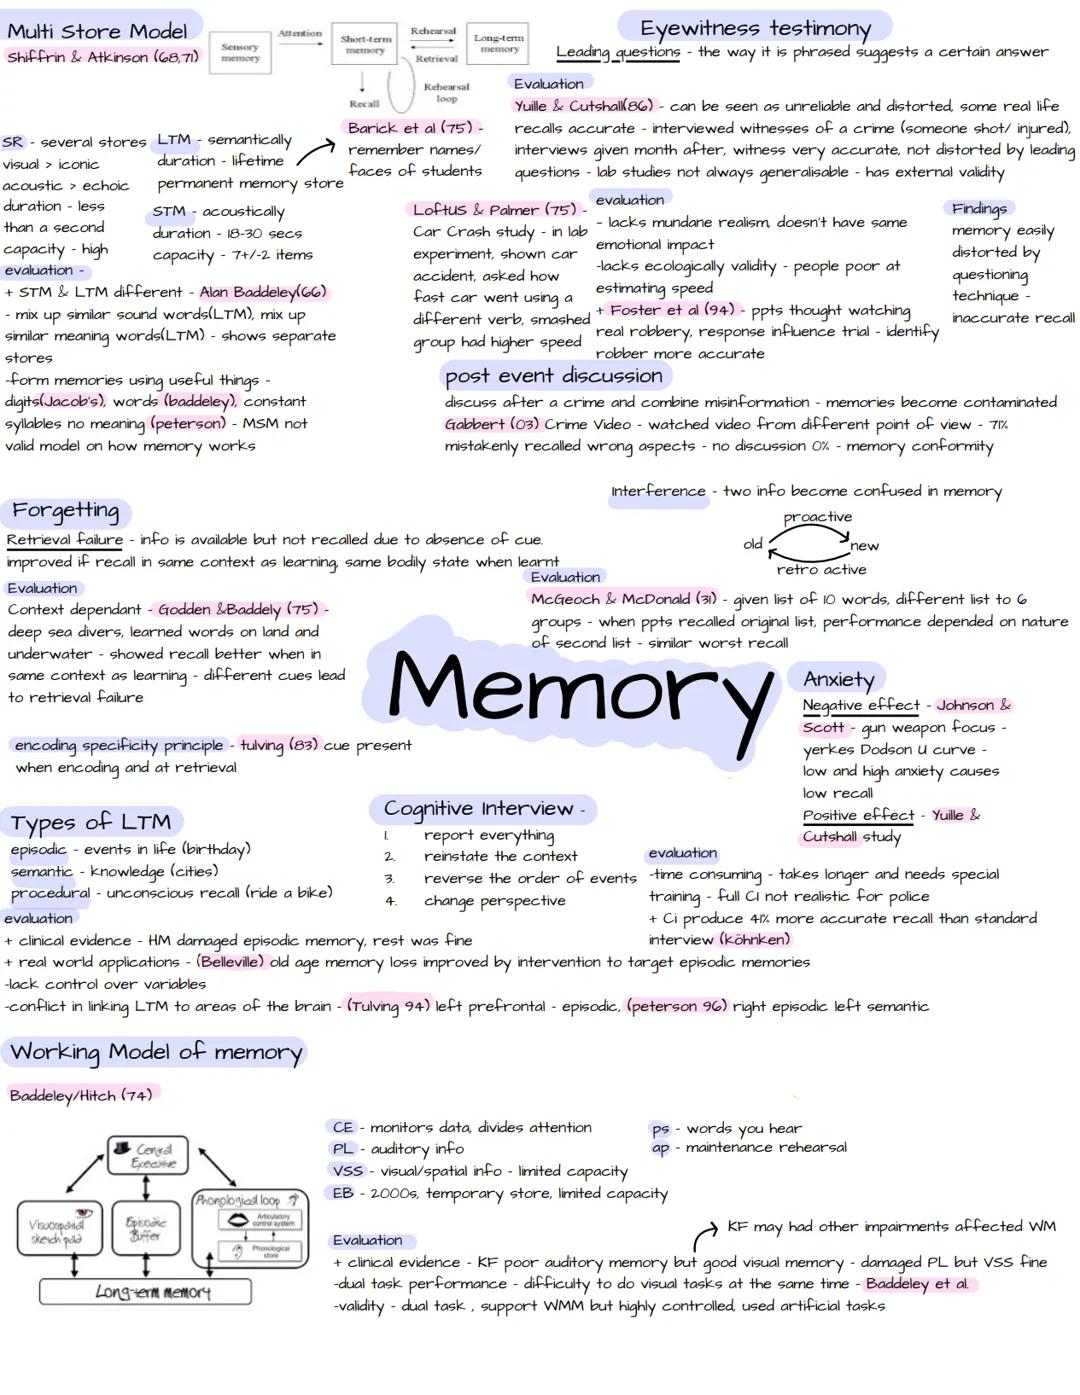 Multi Store Model
Shiffrin & Atkinson (68,71)
Sensory memory
Attention
Short-term memory
Rehearsal
Retrieval
Long-term memory
Rehearsal loop
Recall
SR - several stores
visual > iconic
acoustic > echoic
duration - less
than a second
capacity - high
LTM - semantically
duration - lifetime
permanent memory store
STM - acoustically
duration - 18-30 secs
capacity - 7+/-2 items
Barick et al (75) -
remember names/
faces of students
evaluation -
+ STM & LTM different - Alan Baddeley(66)
- mix up similar sound words(LTM), mix up
similar meaning words(LTM) - shows separate
stores
-form memories using useful things -
digits(Jacob's), words (baddeley), constant
syllables no meaning (peterson) - MSM not
valid model on how memory works
Eyewitness testimony
Leading questions - the way it is phrased suggests a certain answer
Evaluation
Yuille & Cutshall(86) - can be seen as unreliable and distorted, some real life
recalls accurate - interviewed witnesses of a crime (someone shot/ injured),
interviews given month after, witness very accurate, not distorted by leading
questions - lab studies not always generalisable - has external validity
LoftUS & Palmer (75) -
Car Crash study - in lab
experiment, shown car
accident, asked how
fast car went using a
different verb, smashed
group had higher speed
evaluation
- lacks mundane realism, doesn't have same
emotional impact
-lacks ecologically validity - people poor at
estimating speed
+ Foster et al (94) - ppts thought watching
real robbery, response influence trial - identify
robber more accurate
Findings
memory easily
distorted by
questioning
technique -
inaccurate recall
post event discussion
discuss after a crime and combine misinformation - memories become contaminated
Gabbert (03) Crime Video - watched video from different point of view - 71%
mistakenly recalled wrong aspects - no discussion 0% - memory conformity
Forgetting
Retrieval failure - info is available but not recalled due to absence of cue.
improved if recall in same context as learning, same bodily state when learnt
Evaluation
Context dependant - Godden &Baddely (75) -
deep sea divers, learned words on land and
underwater - showed recall better when in
same context as learning - different cues lead
to retrieval failure
encoding specificity principle - tulving (83) cue present
when encoding and at retrieval
Interference - two info become confused in memory
proactive
old
new
retro active
Evaluation
McGeoch & McDonald (31) - given list of 10 words, different list to 6
groups - when ppts recalled original list, performance depended on nature
of second list - similar worst recall
Memory
Anxiety
Negative effect - Johnson &
Scott - gun weapon focus -
yerkes Dodson U curve -
low and high anxiety causes
low recall
Positive effect - Yuille &
Cutshall study
Types of LTM
episodic - events in life (birthday)
semantic - knowledge (cities)
procedural - unconscious recall (ride a bike)
evaluation
+ clinical evidence - HM damaged episodic memory, rest was fine
+ real world applications - (Belleville) old age memory loss improved by intervention to target episodic memories
-lack control over variables
-conflict in linking LTM to areas of the brain - (Tulving 94) left prefrontal - episodic, (peterson 96) right episodic left semantic
Cognitive Interview -
1. report everything
2. reinstate the context
3. reverse the order of events
4. change perspective
evaluation
-time consuming - takes longer and needs special
training - full CI not realistic for police
+ Ci produce 41% more accurate recall than standard
interview (köhnken)
Working Model of memory
Baddeley/Hitch (74)
Central Executive
Visuospatial sketch pad
Episodic Buffer
Phonological loop
Articulatory control system
Phonological store
Long-term memory
CE - monitors data, divides attention
PL - auditory info
VSS - visual/spatial info - limited capacity
EB - 2000s, temporary store, limited capacity
ps - words you hear
ap - maintenance rehearsal
KF may had other impairments affected WM
Evaluation
+ clinical evidence - KF poor auditory memory but good visual memory - damaged PL but VSS fine
-dual task performance - difficulty to do visual tasks at the same time - Baddeley et al.
-validity - dual task , support WMM but highly controlled, used artificial tasks